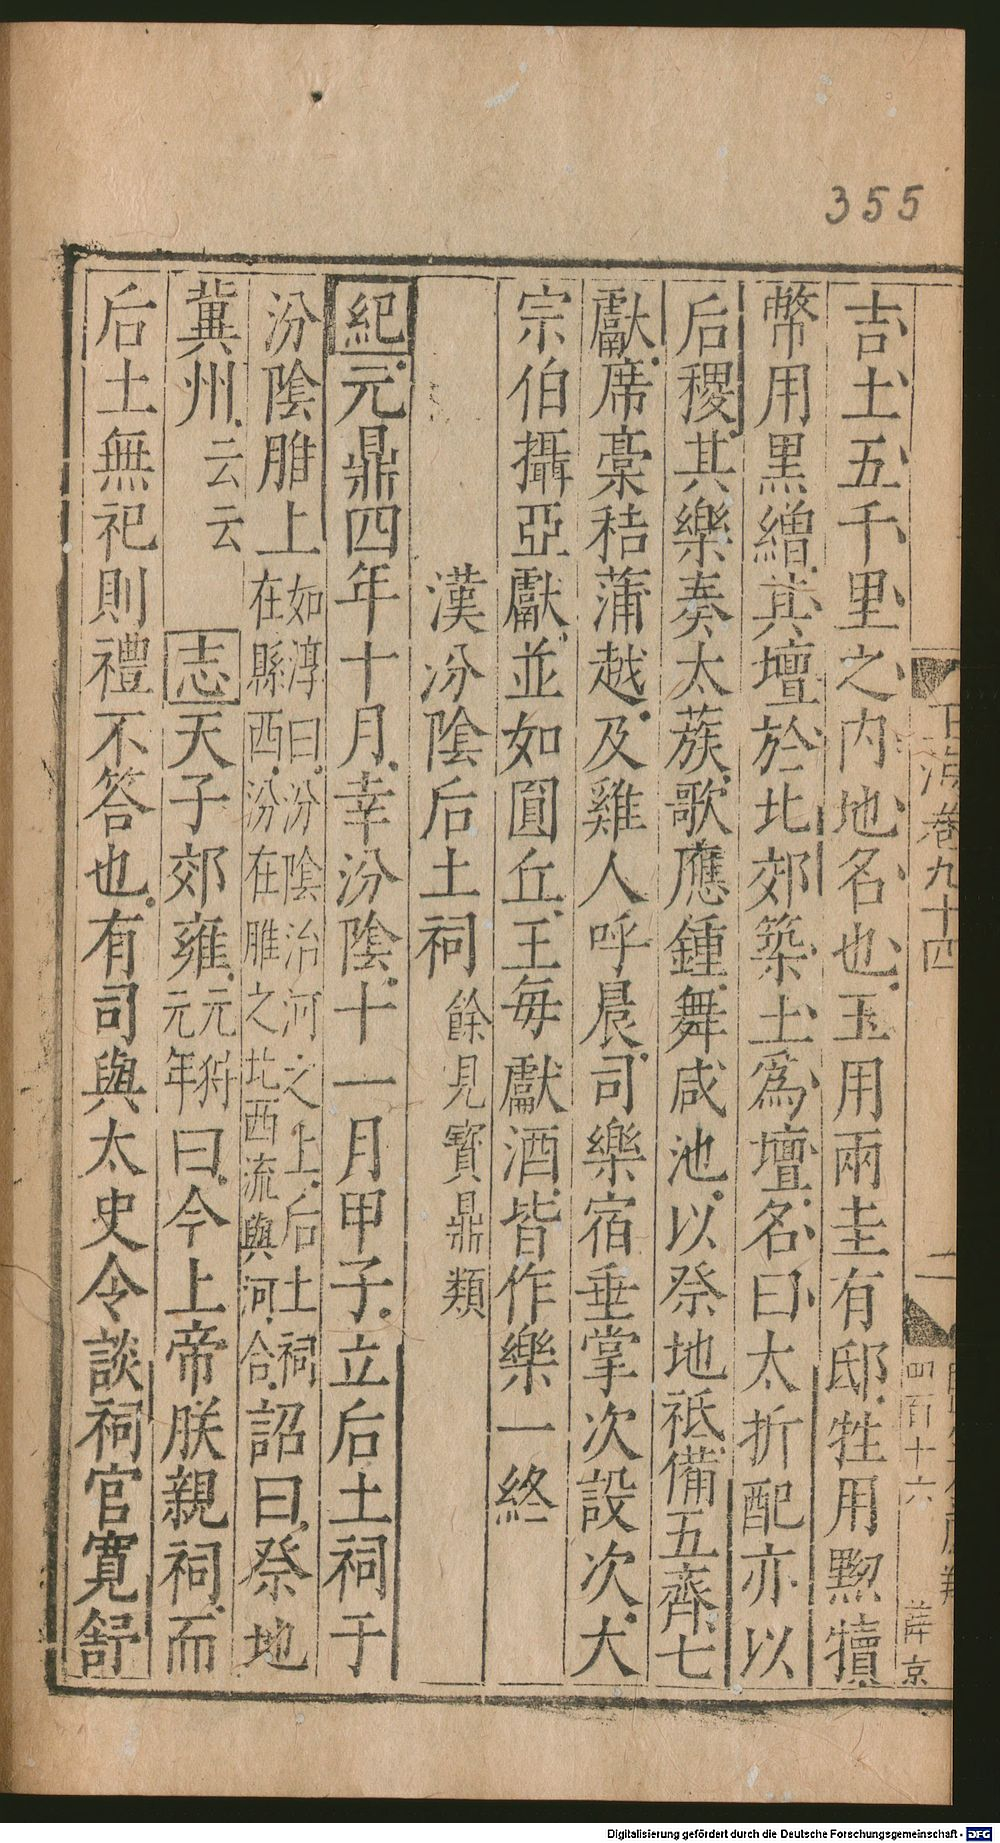 355
吉土五千里之内地名也玉用兩圭有邸牲用黝犢
幣用黒繒其壇於北郊築土爲壇名曰太折配亦以
后稷其樂奏太蔟歌應鍾舞咸池以祭地祗備五齊七
獻席槀秸蒲越及雞人呼晨司樂宿垂掌次設次大
宗伯攝亞獻並如圓丘王每獻酒皆作樂一終
漢汾陰后土祠餘見寳鼎類
紀元鼎四年十月幸汾陰十一月甲子立后土祠于
汾陰脽上如淳曰汾陰治河之上后土祠在縣西汾在脽之北西流與河合詔曰祭地
冀州云云志天子郊雍元狩元年曰今上帝朕親祠而
后土無祀則禮不答也有司與太史令談祠官寛舒
海卷九十四
二
四百十六
薛京
Digitalisierung gefördert durch die Deutsche Forschungsgemeinschaft - DFG